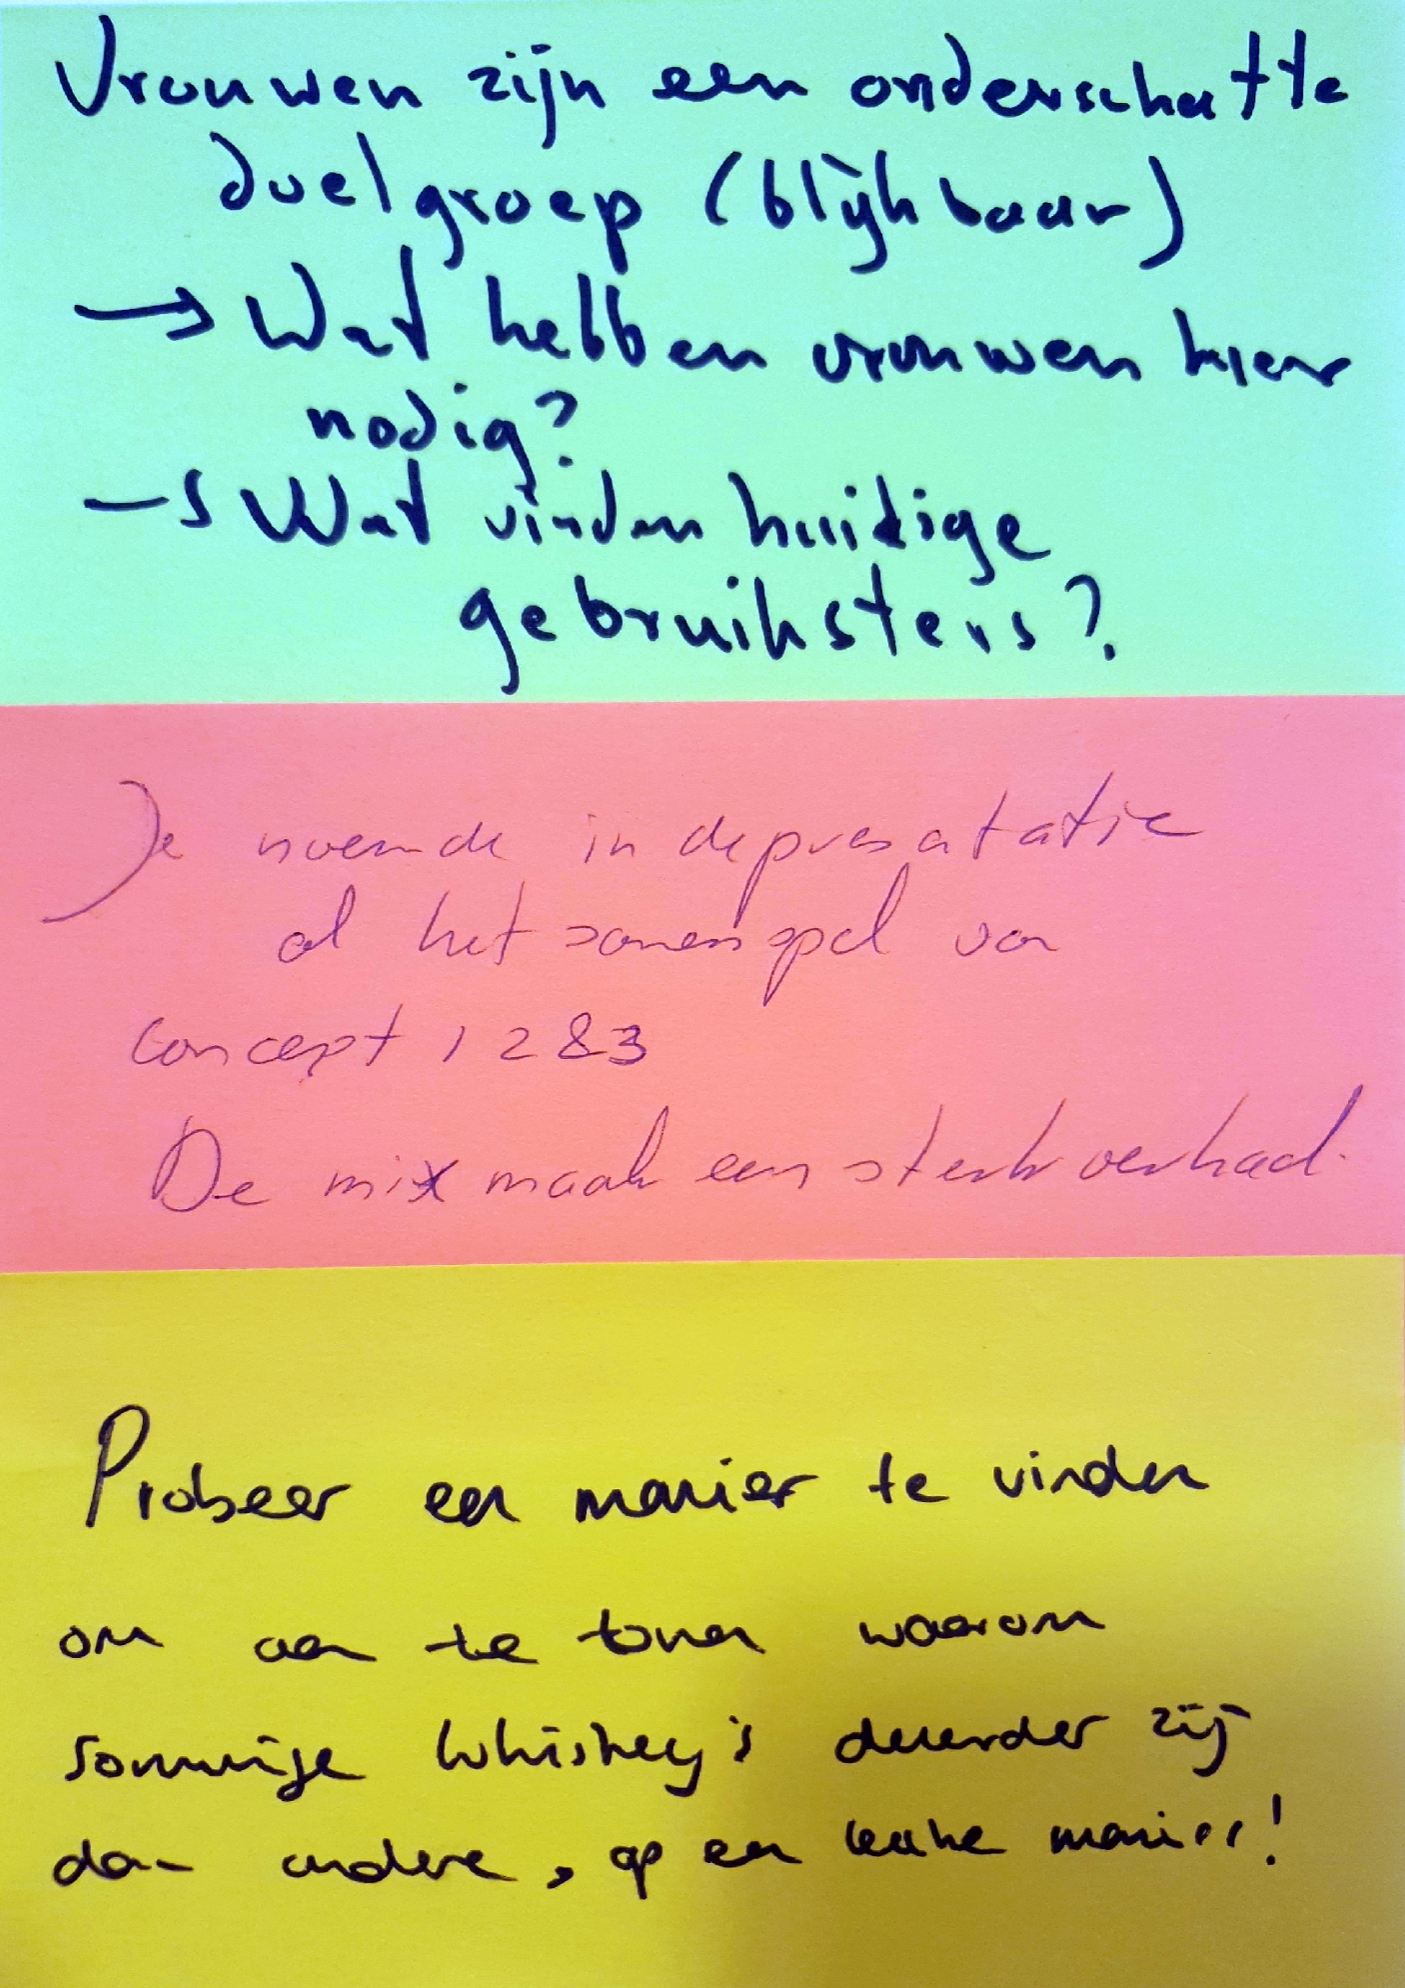 Vrouwen zijn een onderschatte
doelgroep (blijkbaar)
→ Wat hebben vrouwen hier
nodig?
→ Wat vinden huidige
gebruiksters?
Je noemde in de presatatie
al het samenspel van
concept 1 2 & 3
De mix maak een sterk verhaal.
Probeer een manier te vinden
om aan te tonen waarom
sommige Whiskey's duurder zij
dan andere, op een leuke manier!